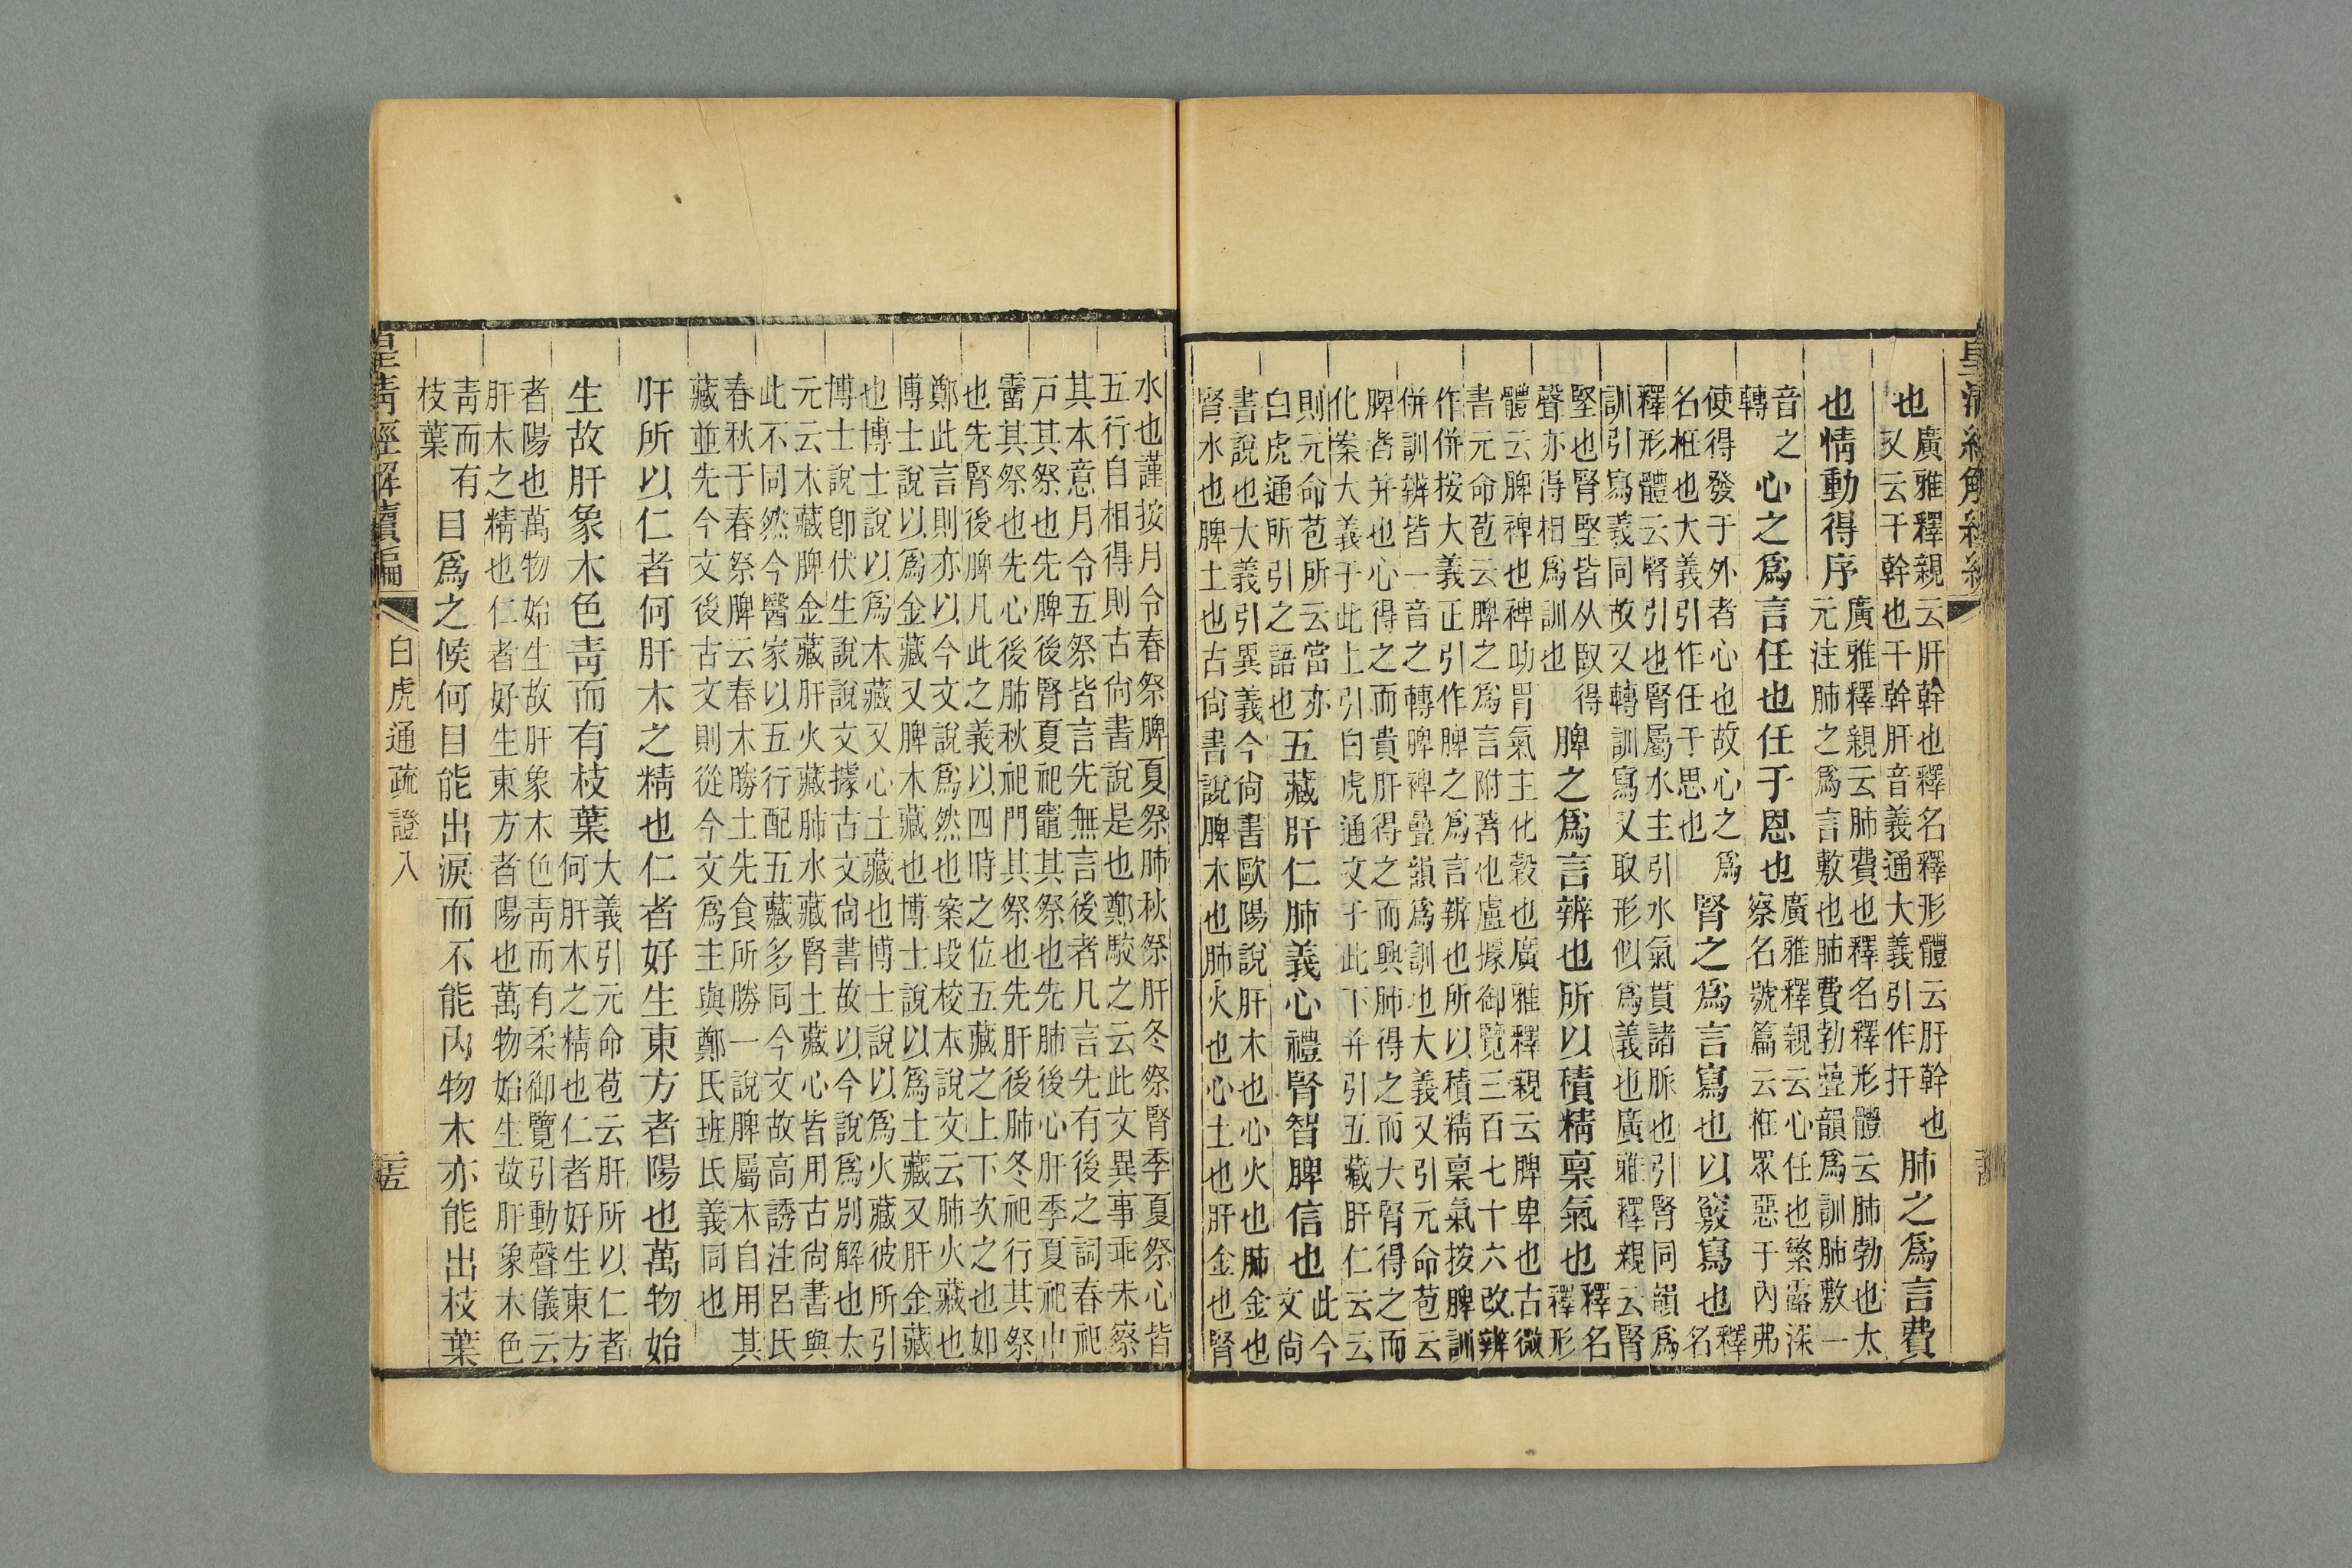 也
廣雅釋親云肝幹也釋名釋形體云肝幹也
又云干幹也干幹肝音義通大義引作扞
肺之爲言費
也情動得序
廣雅釋親云肺費也釋名釋形體云肺勃也太
元注肺之爲言敷也肺費勃疊韻爲訓肺敷一
音之
轉
心之爲言任也任于恩也
廣雅釋親云心任也繁露深
察名號篇云栣眾惡于內弗
使得發于外者心也故心之爲
名栣也大義引作任于思也
腎之爲言寫也以竅寫也
釋
名
釋形體云腎引也腎屬水主引水氣貫諸脈也引腎同韻爲
訓引寫義同故又轉訓寫又取形似爲義也廣雅釋親云腎
堅也腎堅皆从臤得
聲亦得相爲訓也
脾之爲言辨也所以積精稟氣也
釋名
釋形
體云脾裨也裨助胃氣主化穀也廣雅釋親云脾卑也古微
書元命苞云脾之爲言附著也盧據御覽三百七十六改辨
作併按大義正引作脾之爲言辨也所以積精稟氣按脾訓
併訓辨皆一音之轉脾裨疊韻爲訓也大義又引元命苞云
脾者并也心得之而貴肝得之而興肺得之而大腎得之而
化案大義于此上引白虎通文于此下并引五藏肝仁云云
則元命苞所云當亦
白虎通所引之語也
五藏肝仁肺義心禮腎智脾信也
此今
文尙
書說也大義引異義今尙書歐陽說肝木也心火也肺金也
腎水也脾土也古尙書說脾木也肺火也心土也肝金也腎
水也謹按月令春祭脾夏祭肺秋祭肝冬祭腎季夏祭心皆
五行自相得則古尙書說是也鄭駮之云此文異事乖未察
其本意月令五祭皆言先無言後者凡言先有後之詞春祀
戸其祭也先脾後腎夏祀竈其祭也先肺後心肝季夏祀中
霤其祭也先心後肺秋祀門其祭也先肝後肺冬祀行其祭
也先腎後脾凡此之義以四時之位五藏之上下次之也如
鄭此言則亦以今文說爲然也案段校本說文云肺火藏也
博士說以爲金藏又脾木藏也博士說以爲土藏又肝金藏
也博士說以爲木藏又心土藏也博士說以爲火藏彼所引
博士說卽伏生說說文據古文尙書故以今說爲別解也太
元云木藏脾金藏肝火藏肺水藏腎土藏心皆用古尙書與
此不同然今醫家以五行配五藏多同今文故高誘注呂氏
春秋于春祭脾云春木勝土先食所勝一說脾屬木自用其
藏並先今文後古文則從今文爲主與鄭氏班氏義同也
肝所以仁者何肝木之精也仁者好生東方者陽也萬物始
生故肝象木色靑而有枝葉
大義引元命苞云肝所以仁者
何肝木之精也仁者好生東方
者陽也萬物始生故肝象木色靑而有柔御覽引動聲儀云
肝木之精也仁者好生東方者陽也萬物始生故肝象木色
靑而有
枝葉
目爲之候何目能出淚而不能內物木亦能出枝葉
皇清經解續編
白虎通疏證八